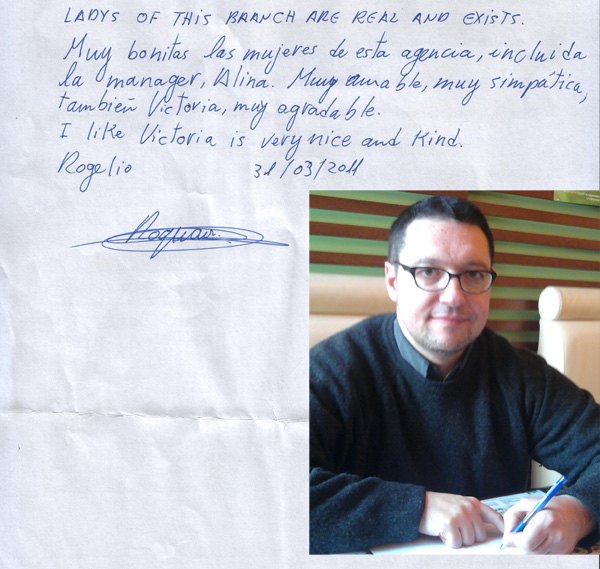 LADYS OF THIS BRANCH ARE REAL AND EXISTS.
Muy bonitas las mujeres de esta agencia, incluida
la manager, Alina. Muy amable, muy simpática,
también Victoria, muy agradable.
I like Victoria is very nice and kind.
Rogelio 31/03/2011